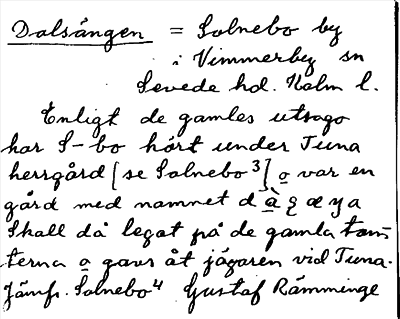 Dalsängen = Solnebo by
i Vimmerby sn
Sevede hd. Kalm l.
Enligt de gamles utsago
har S-bo hört under Tuna
herrgård [se Solnebo 3] o var en
gård med namnet
Skall då legat på de gamla tom-
terna o gavs åt jägaren vid Tuna.
Jämf. Solnebo 4 Gustaf Rämminge